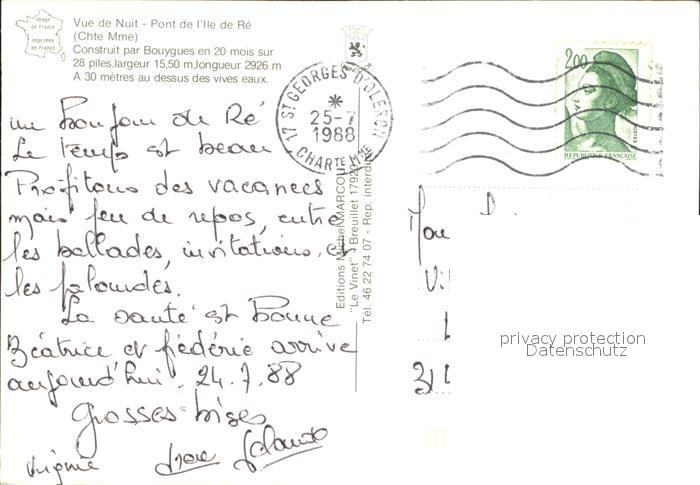 Image de France
Imprimée en France
Vue de Nuit - Pont de l'Ile de Ré
(Chte Mme)
Construit par Bouygues en 20 mois sur
28 piles,largeur 15,50 m,longueur 2926 m
A 30 mètres au dessus des vives eaux.
un bonjour de Ré
Le temps est beau
Profitons des vacances
mais peu de repos, entre
les ballades, invitations, et
les palourdes.
La santé est bonne
Béatrice et frédéric arrive
aujourd'hui. 24.7.88
grosses bises
Virginie
Editions Michel MARCOU
"Le Vinet" - Breuillet 17920
Tél. 46 22 74 07 - Rep. interdite
17 ST GEORGES D'OLERON
25-7
1988
CHARTE MME
2,00
POSTES
REPUBLIQUE FRANCAISE
D.
privacy protection
Datenschutz